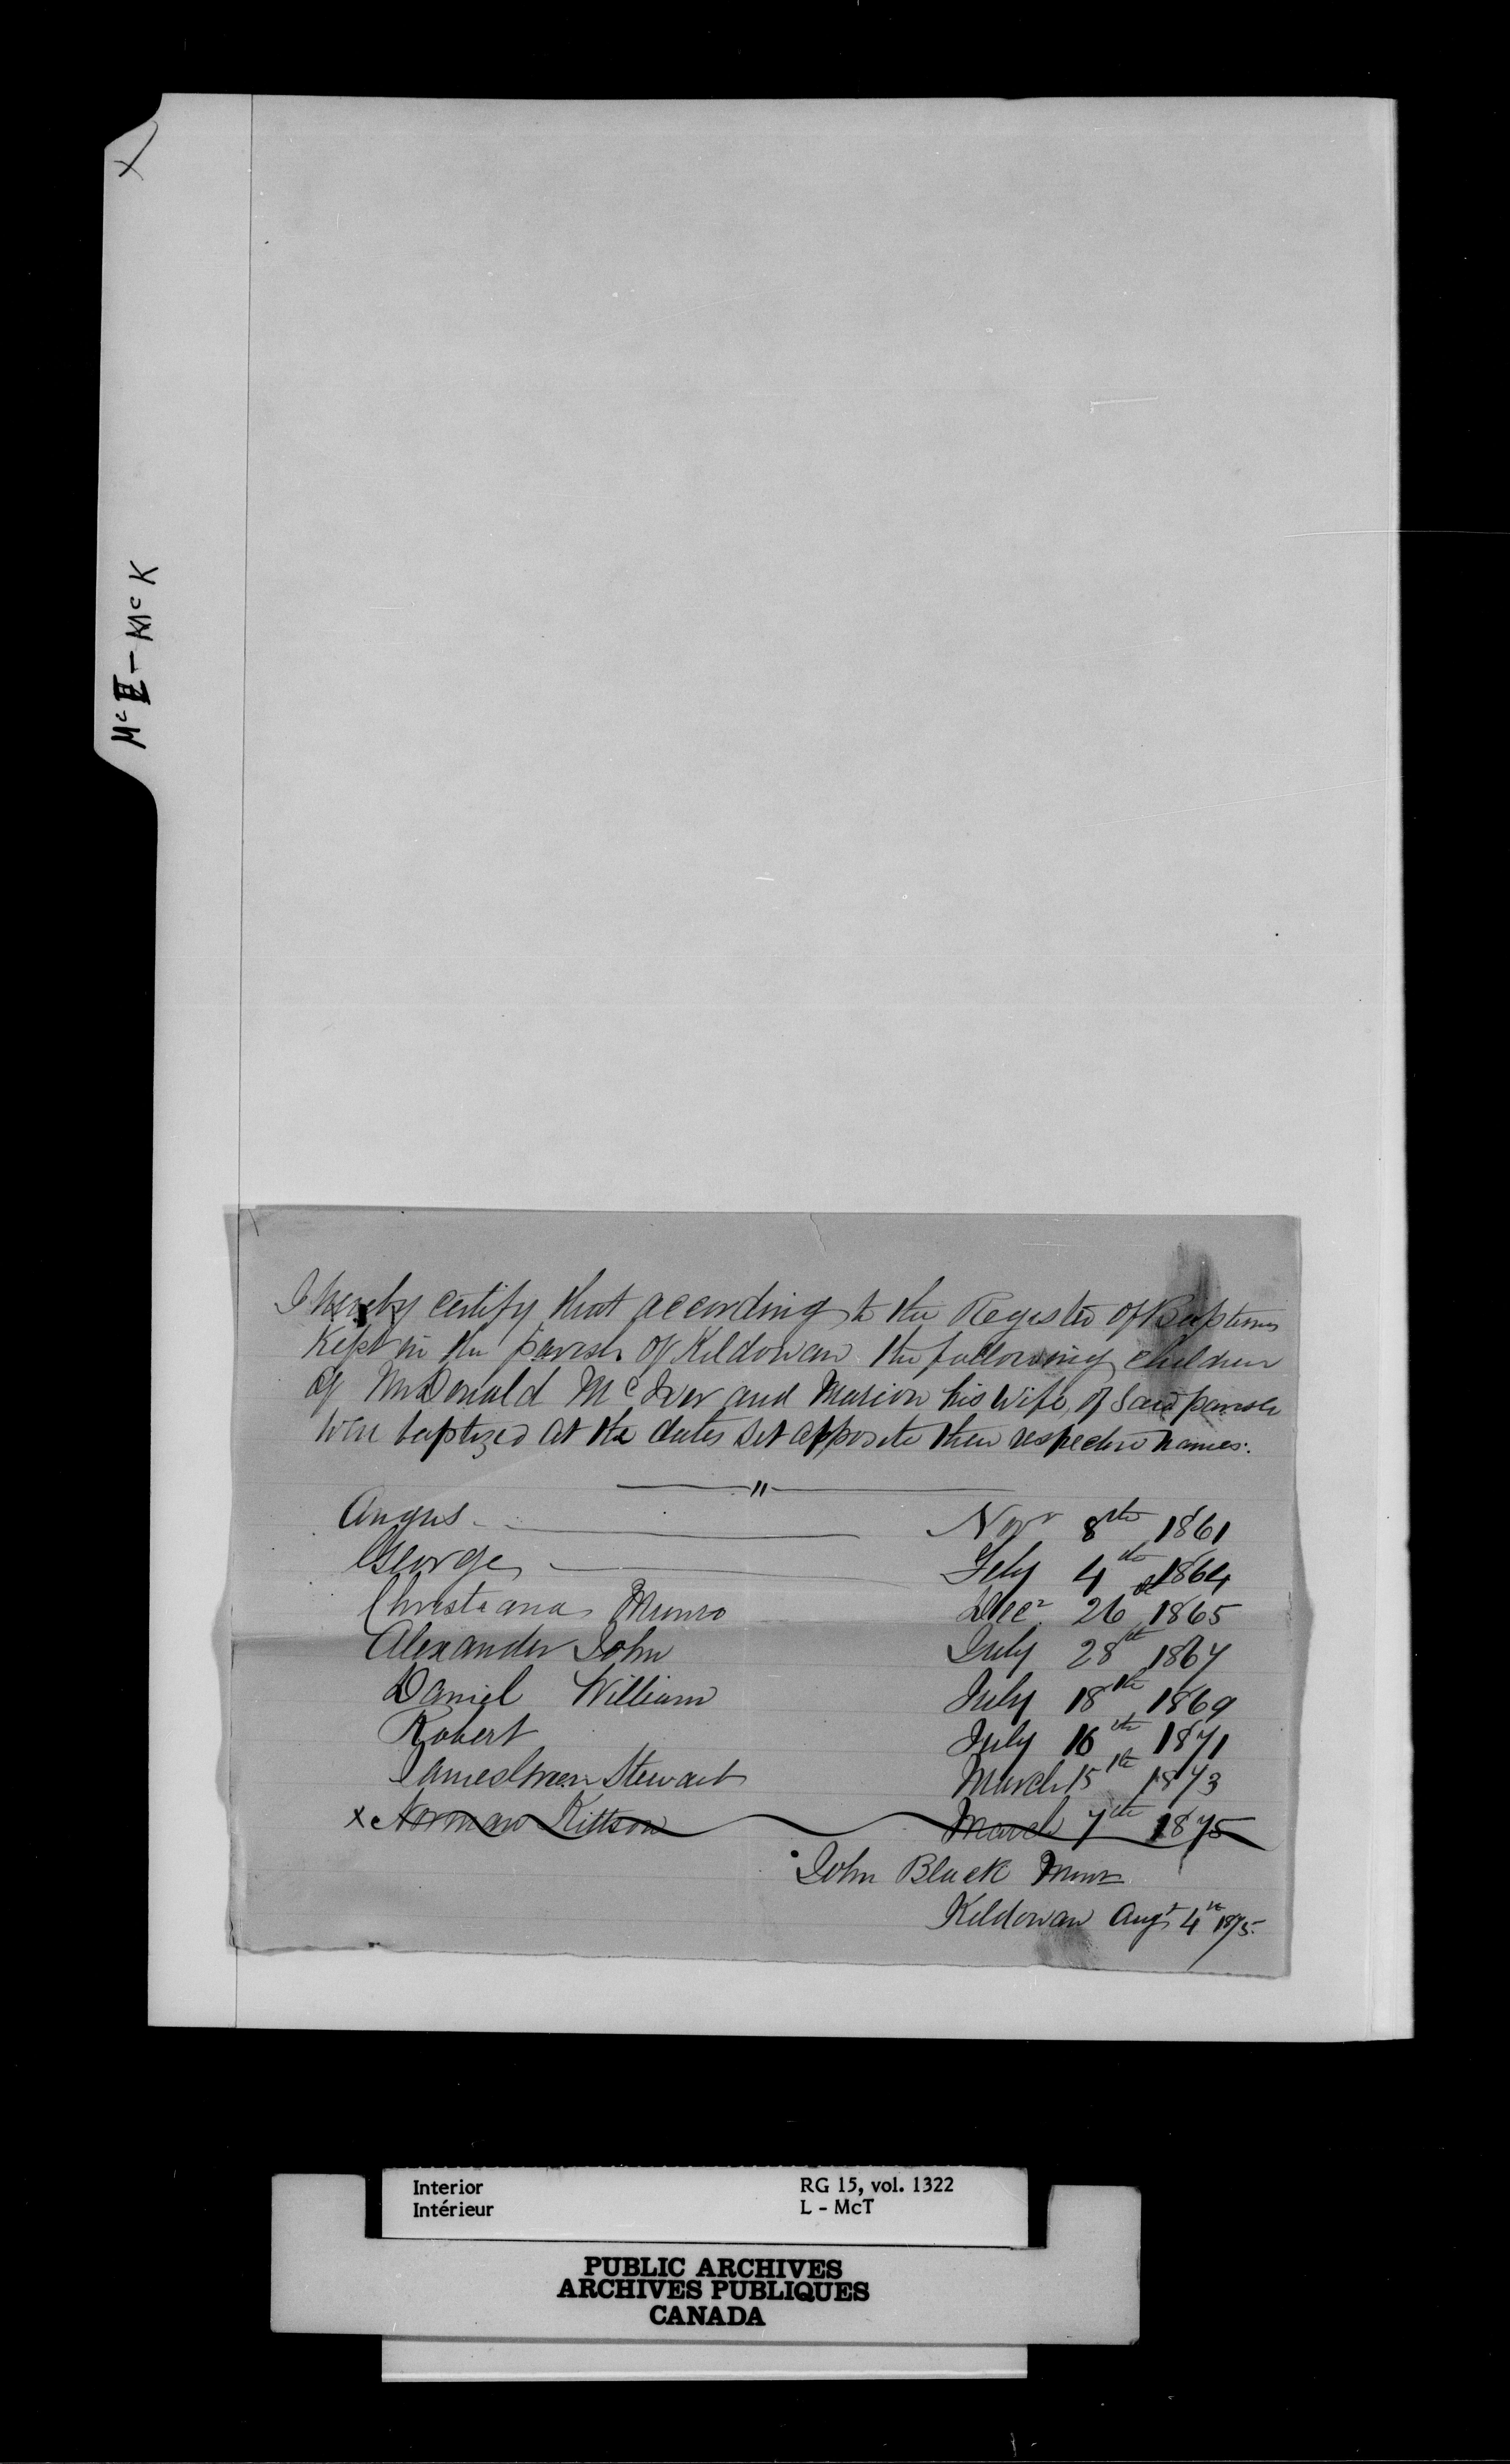 X
Mc I - McK
I hereby certify that according to the Register of Baptisms
Kept in the parish of Kildonan the following children
of Mr Donald McIver and Marion his wife, of said parish
were baptized at the dates set opposite their respective names:
Angus Novr 8th 1861
George Feby 4th 1864
Christiana Munro Decr 26 1865
Alexander John July 28th 1867
Daniel William July 18th 1869
Robert July 16th 1871
James Green Stewart March 15th 1873
x Norman Kittson March 7th 1875
John Black Minr
Kildonan Augt 4th 1875.
Interior
Intérieur
RG 15, vol. 1322
L - McT
PUBLIC ARCHIVES
ARCHIVES PUBLIQUES
CANADA